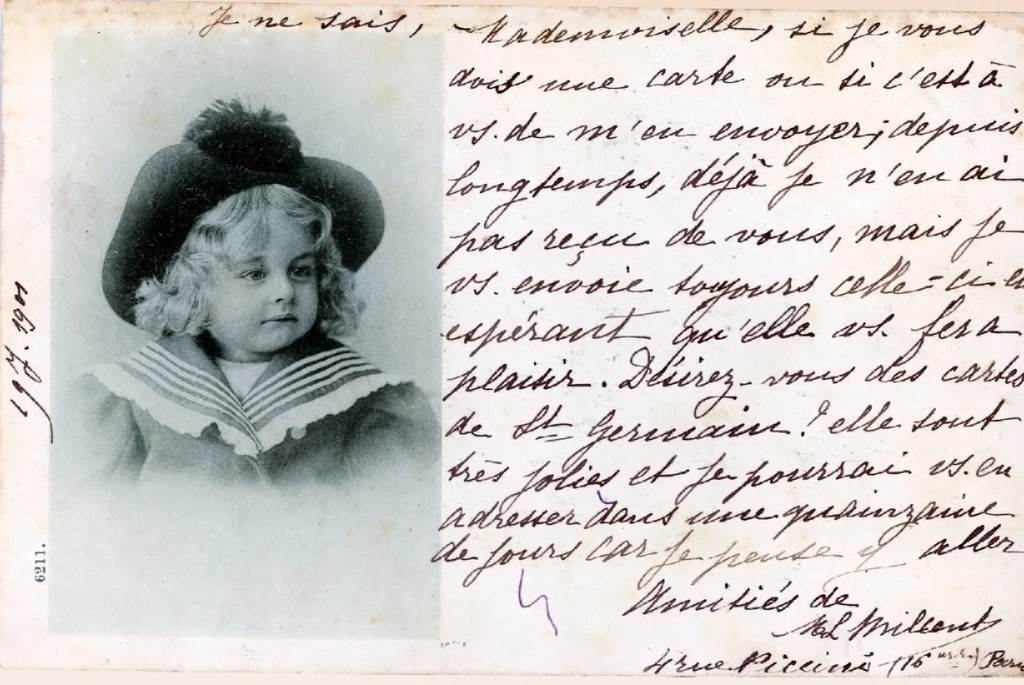 Je ne sais, Mademoiselle, si je vous
dois une carte ou si c'est à
vs. de m'en envoyer; depuis
longtemps, déjà je n'en ai
pas reçu de vous, mais je
vs. envoie toujours celle-ci en
espérant qu'elle vs. fera
plaisir. Désirez-vous des cartes
de St Germain? elle sont
très jolies et je pourrai vs. en
adresser dans une quainzaine
de jours car je pense y aller
Amitiés de
4 rue Piccini (16
Paris
19-7-1901
6211.